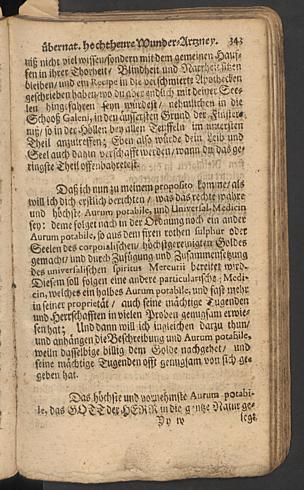 übernat. hochthewre Wunder-Artzney. 343
niß nicht viel wissen/sondern mit dem gemeinen Hauf-
fen in ihrer Thorheit/ Blindheit und Narrheit sitzen
bleiben/ und ein Recipe in die verschmierte Apothecken
geschrieben haben/ wo du aber endlich mit deiner See-
len hingefahren seyn würdest/ nehmlichen in die
Schooß Galeni, in den äussersten Grund der Finster-
niß/ so in der Höllen bey allen Teuffeln im untersten
Theil anzutreffen; Eben also würde dein Leib und
Seel auch dahin verschafft werden/ wann du das ge-
ringste Theil offenbahretest.
Daß ich nun zu meinem proposito komme/ als
will ich dich erstlich berichten/ was das rechte wahre
und höchste Aurum potabile, und Universal-Medicin
sey: deme folget nach in der Ordnung noch ein ander
Aurum potabile, so aus dem fixen rothen sulphur oder
Seelen des corporalischen/ höchstgereinigten Goldes
gemacht/ und durch Zufügung und Zusammensetzung
des universalischen spiritus Mercurii bereitet wird.
Diesem soll folgen eine andere particularische Medi-
cin, welches ein halbes Aurum potabile, und fast mehr
in seiner proprietät/ auch seine mächtige Tugenden
und Herrschafften in vielen Proben genugsam erwie-
sen hat; Und dann will ich ingleichen darzu thun/
und anhangen die Beschreibung und Aurum potabile,
weiln dasselbige billig dem Golde nachgehet/ und
seine mächtige Tugenden offt genugsam von sich ge-
geben hat.
Das höchste und vornehmste Aurum potabi-
le, das GOTT der HERR in die gantze Natur ge-
Yy iv legt